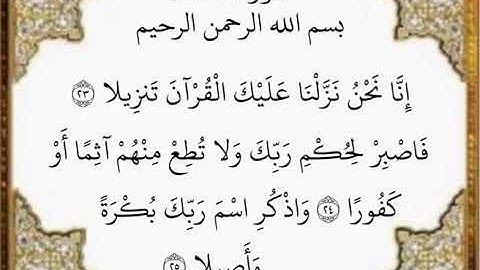 بسم الله الرحمن الرحيم
إِنَّا نَحْنُ نَزَّلْنَا عَلَيْكَ الْقُرْآنَ تَنزِيلا ۝٢٣
فَاصْبِرْ لِحُكْمِ رَبِّكَ وَلا تُطِعْ مِنْهُمْ آثِمًا أَوْ
كَفُورًا ۝٢٤ وَاذْكُرِ اسْمَ رَبِّكَ بُكْرَةً
وَأَصِيلا ۝٢٥